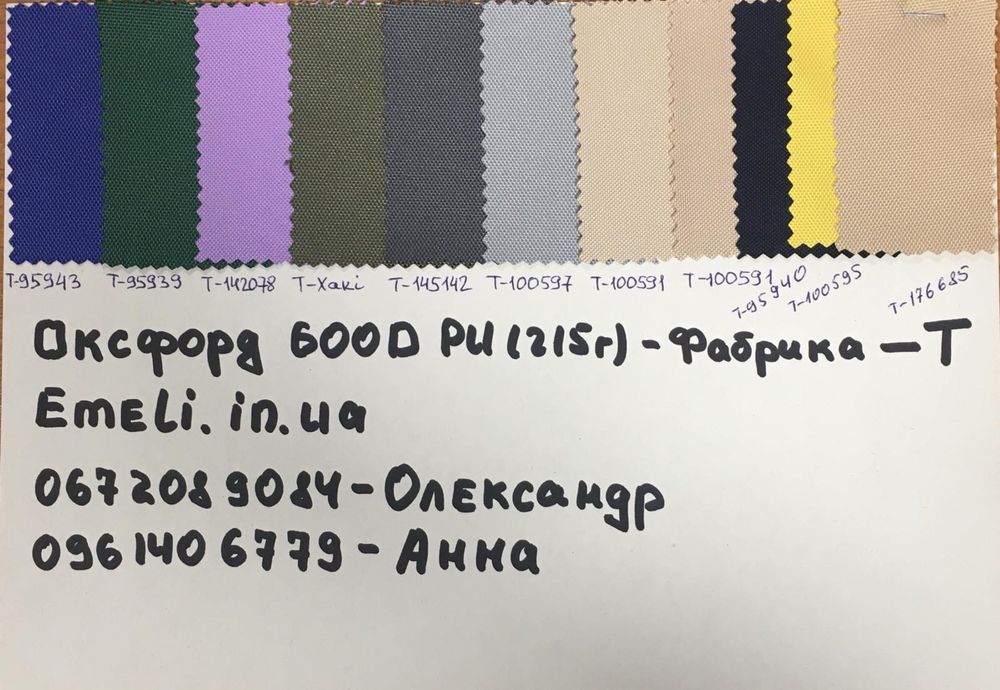 T-95943 T-95939 T-142078 T-Хакі T-145142 T-100597 T-100591 T-100591 T-95940 T-100595 T-176685
Оксфорд 600D PU (215г) - Фабрика - Т
Emeli.in.ua
0672089084 - Олександр
0961406779 - Анна